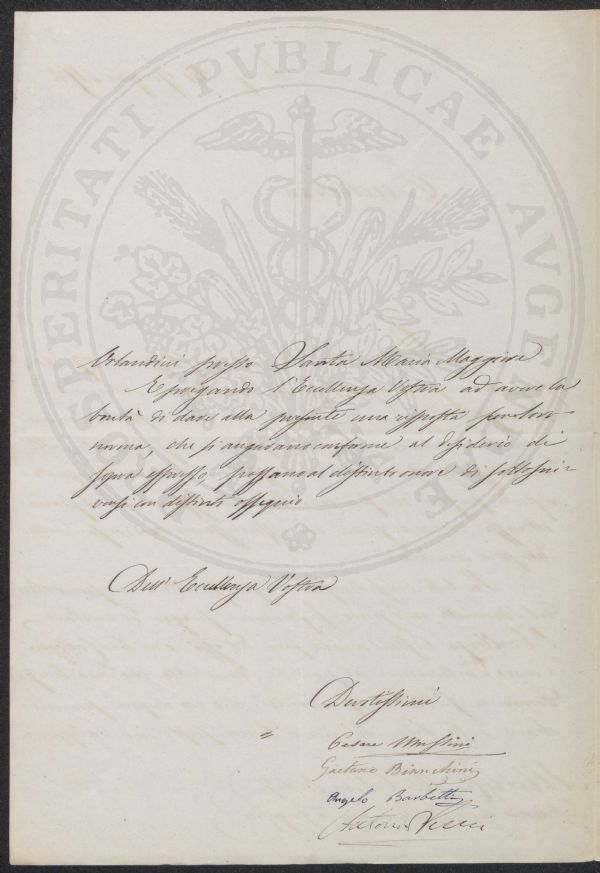 PROSPERITATI PVBLICAE AVGENDAE
Orlandini presso Santa Maria Maggiore
E pregando l'Eccellenza Vostra ad avere la
bontà di dare alla presente una risposta per loro
norma, che si augurano conforme al desiderio di
sopra espresso, passano al distinto onore di sottoscri-
versi con distinto ossequio
Dell' Eccellenza Vostra
Devotissimi
Cesare Mussini
Gaetano Bianchini
Angelo Barbetti
Antonio